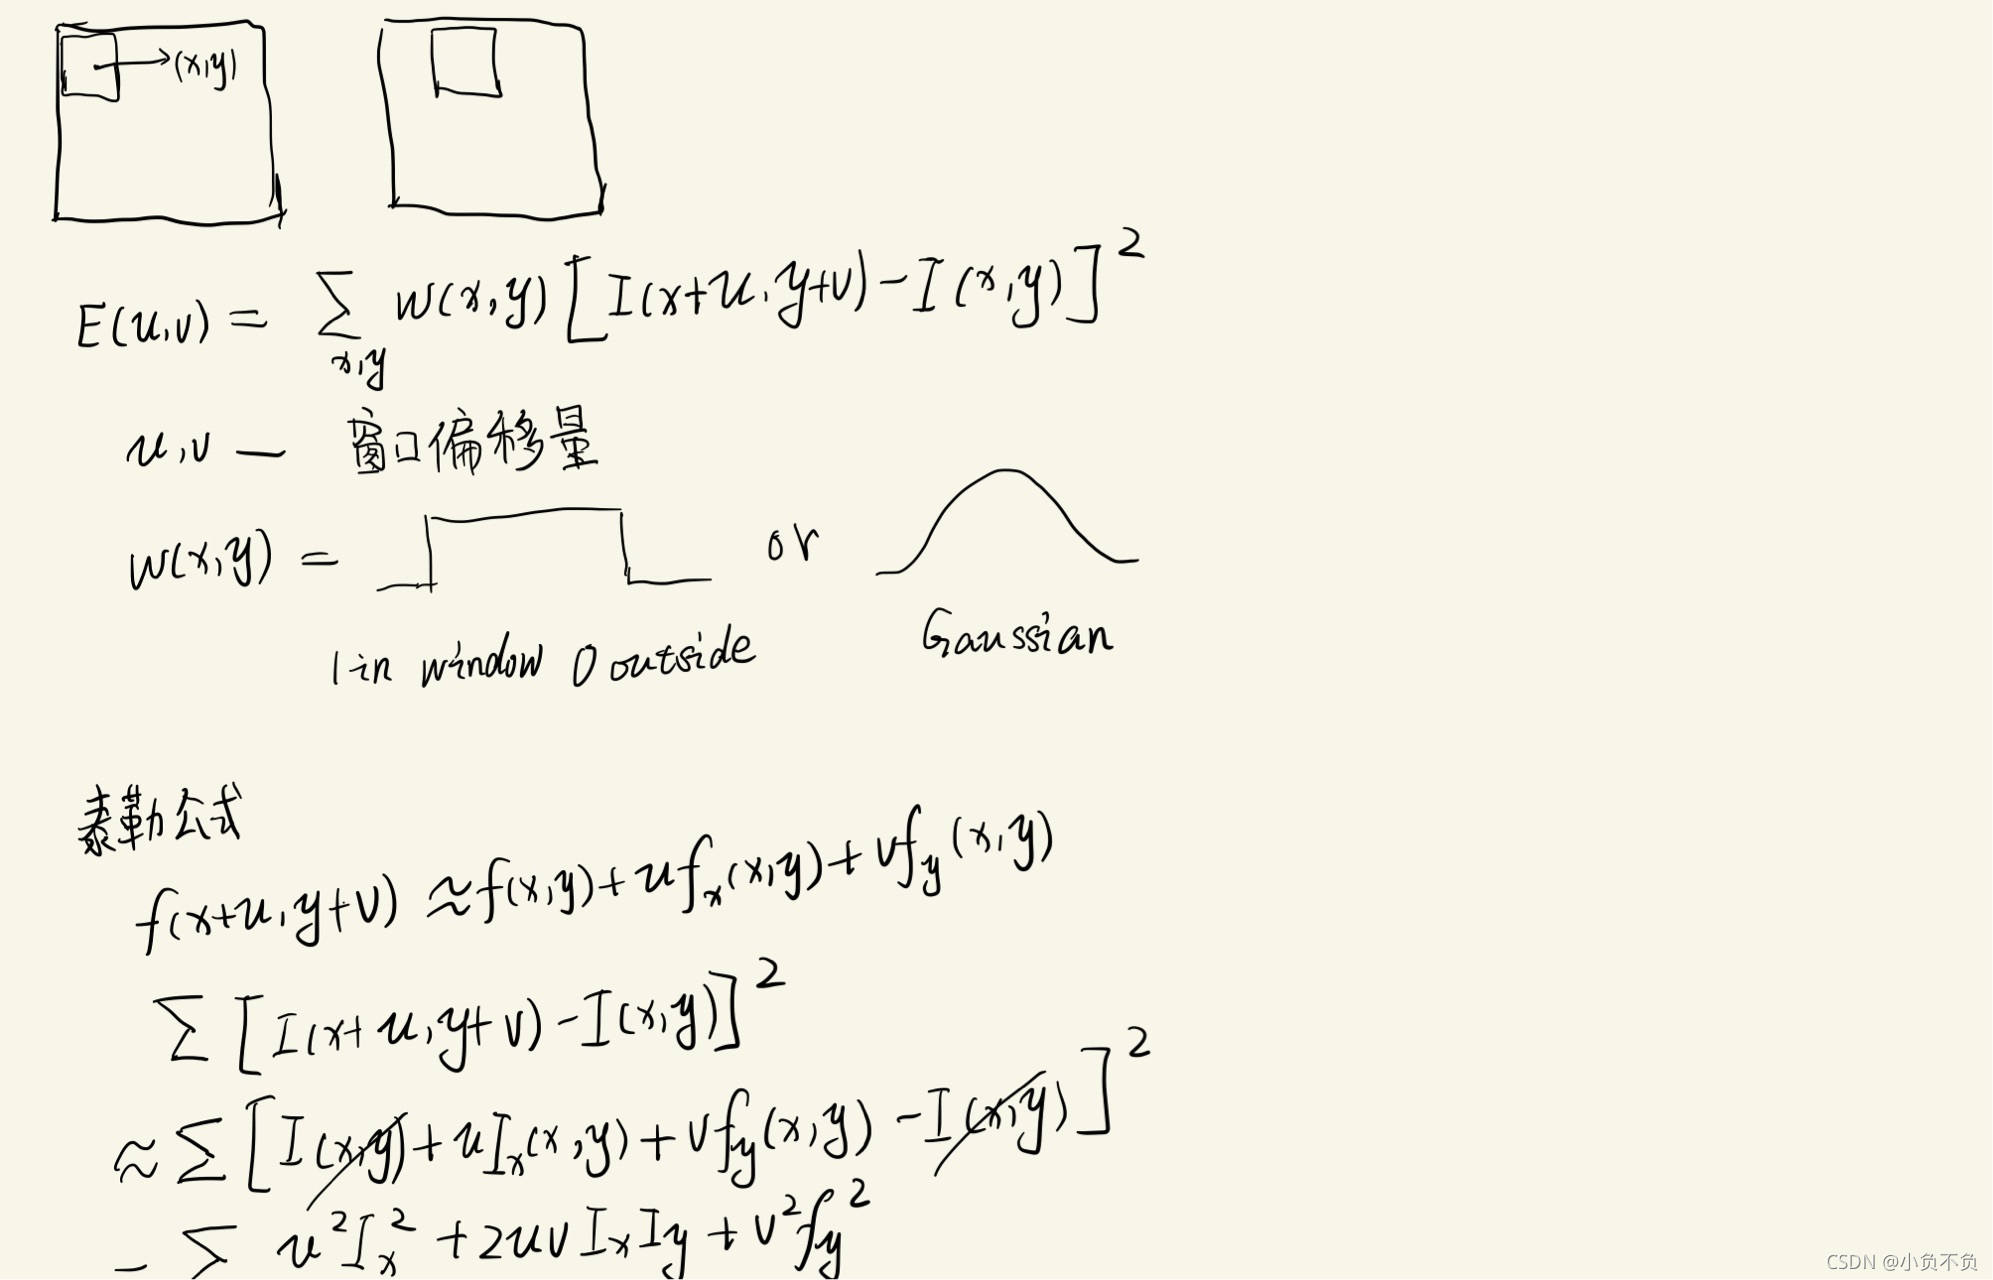 (x,y)
E(u,v) = ∑ w(x,y) [I(x+u,y+v) - I(x,y)]²
x,y
u,v — 窗口偏移量
w(x,y) = or
1 in window 0 outside Gaussian
泰勒公式
f(x+u,y+v) ≈ f(x,y) + u fₓ(x,y) + v f_y(x,y)
∑ [I(x+u,y+v) - I(x,y)]²
≈ ∑ [I(x,y) + u Iₓ(x,y) + v f_y(x,y) - I(x,y)]²
= ∑ u² Iₓ² + 2uv Iₓ I_y + v² f_y²
CSDN @小负不负